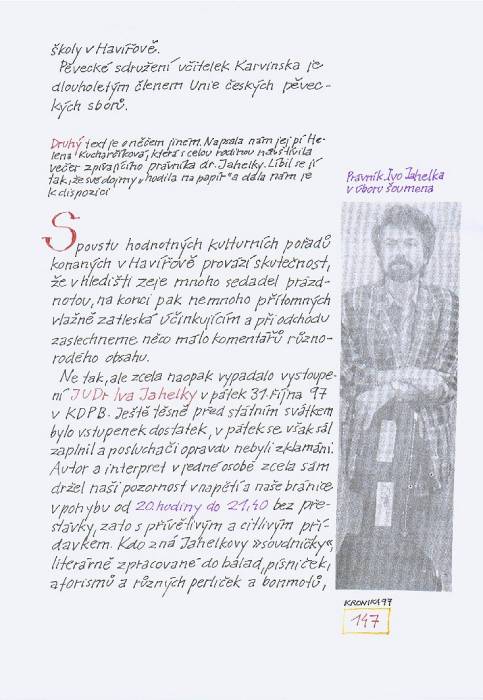 školy v Havířově.
Pěvecké sdružení učitelek Karvinska je
dlouholetým členem Unie českých pěvec-
kých sborů.
Druhý text je o něčem jiném. Napsala nám jej pí He-
lena Kucharčíková, která s celou rodinou navštívila
večer zpívajícího právníka dr. Jahelky. Líbil se jí
tak, že své dojmy „hodila na papír" a dala nám je
k dispozici
Právník Ivo Jahelka
v oboru šoumena
Spoustu hodnotných kulturních pořadů
konaných v Havířově provází skutečnost,
že v hledišti zeje mnoho sedadel prázd-
notou, na konci pak nemnoho přítomných
vlažně zatleská účinkujícím a při odchodu
zaslechneme něco málo komentářů různo-
rodého obsahu.
Ne tak, ale zcela naopak vypadalo vystoupe-
ní JUDr Iva Jahelky v pátek 31. října 97
v KDPB. Ještě těsně před státním svátkem
bylo vstupenek dostatek, v pátek se však sál
zaplnil a posluchači opravdu nebyli zklamáni.
Autor a interpret v jedné osobě zcela sám
držel naši pozornost v napětí a naše bránice
v pohybu od 20. hodiny do 21,40 bez pře-
stávky, zato s přívětivým a citlivým pří-
davkem. Kdo zná Jahelkovy »soudničky«,
literárně zpracované do balad, písniček,
aforismů a různých perliček a bonmotů,
KRONIKA 97
147